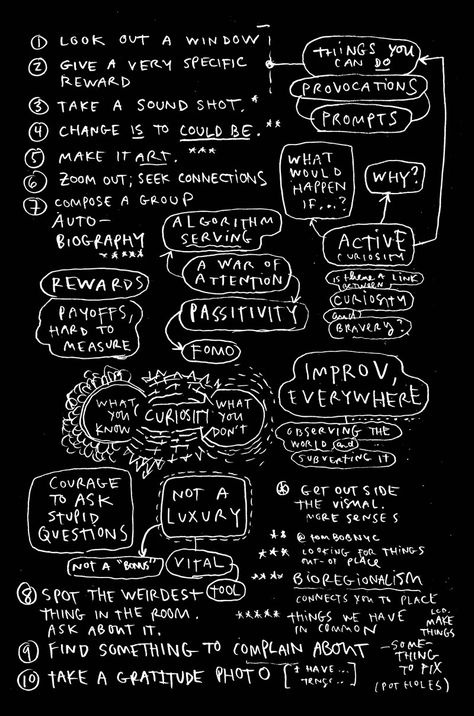 ① LOOK OUT A WINDOW
② GIVE A VERY SPECIFIC
REWARD
③ TAKE A SOUND SHOT. *
④ CHANGE IS TO COULD BE. **
⑤ MAKE IT ART. ***
⑥ ZOOM OUT; SEEK CONNECTIONS
⑦ COMPOSE A GROUP
AUTO-
BIOGRAPHY
*****
THINGS YOU
CAN DO
PROVOCATIONS
PROMPTS
WHAT
WOULD
HAPPEN
IF...?
WHY?
ACTIVE
CURIOSITY
IS THERE A LINK
BETWEEN
CURIOSITY
and
BRAVERY?
ALGORITHM
SERVING
A WAR OF
ATTENTION
PASSITIVITY
FOMO
REWARDS
PAYOFFS,
HARD TO
MEASURE
WHAT
YOU
KNOW
CURIOSITY
WHAT
YOU
DON'T
IMPROV,
EVERYWHERE
OBSERVING THE
WORLD and
SUBVERTING IT
COURAGE
TO ASK
STUPID
QUESTIONS
NOT A
LUXURY
NOT A "BONUS"
VITAL
TOOL
* GET OUTSIDE
THE VISUAL.
MORE SENSES
** @TOMBOBNYC
*** LOOKING FOR THINGS
OUT-OF PLACE
**** BIOREGIONALISM
CONNECTS YOU TO PLACE
***** THINGS WE HAVE
IN COMMON
MAKE
THINGS
⑧ SPOT THE WEIRDEST
THING IN THE ROOM.
ASK ABOUT IT.
⑨ FIND SOMETHING TO COMPLAIN ABOUT
—SOME-
THING
TO FIX
(POTHOLES)
⑩ TAKE A GRATITUDE PHOTO
[I HAVE...